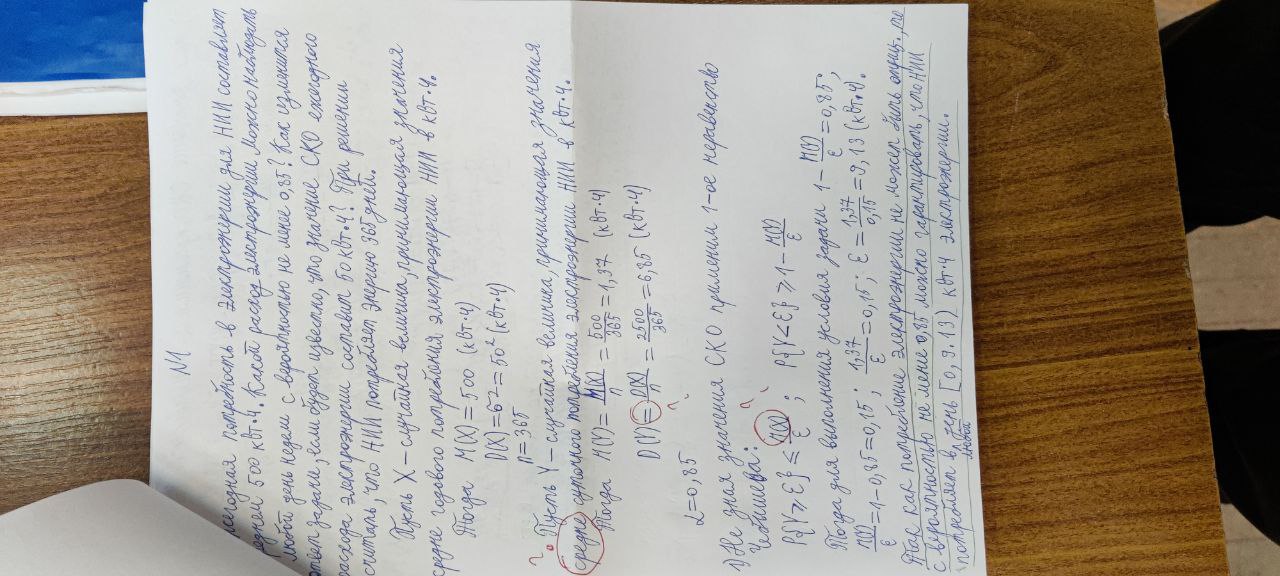 N1
Ежегодная потребность в электроэнергии для НИИ составляет
средней 500 кВт·ч. Какой расход электроэнергии можно наблюдать
в любой день недели с вероятностью не менее 0,85? Как изменится
ответ задачи, если будет известно, что значение СКО ежегодного
расхода электроэнергии составит 50 кВт·ч? При решении
считать, что НИИ потребляет энергию 365 дней.
Пусть X – случайная величина, принимающая значения
средне годового потребления электроэнергии НИИ в кВт·ч.
Тогда M(X) = 500 (кВт·ч)
D(X) = б2 = 50² (кВт·ч)
n = 365
?. Пусть Y – случайная величина, принимающая значения
средне суточного потребления электроэнергии НИИ в кВт·ч.
Тогда M(Y) = M(X)/n = 500/365 = 1,37 (кВт·ч)
D(Y) = D(X)/n = 2500/365 = 6,85 (кВт·ч)
?
α = 0,85
1) Не зная значения СКО применим 1-ое неравенство
Чебышева:
P{Y ≥ ε} ≤ M(X)/ε ; P{Y < ε} ≥ 1 – M(Y)/ε
?
Тогда для выполнения условия задачи 1 – M(Y)/ε = 0,85;
M(Y)/ε = 1 – 0,85 = 0,15; 1,37/ε = 0,15; ε = 1,37/0,15 = 9,13 (кВт·ч).
Так как потребление электроэнергии не может быть отриц., то
с вероятностью не менее 0,85 можно гарантировать, что НИИ
потребляет в любой день [0, 9.13) кВт·ч электроэнергии.